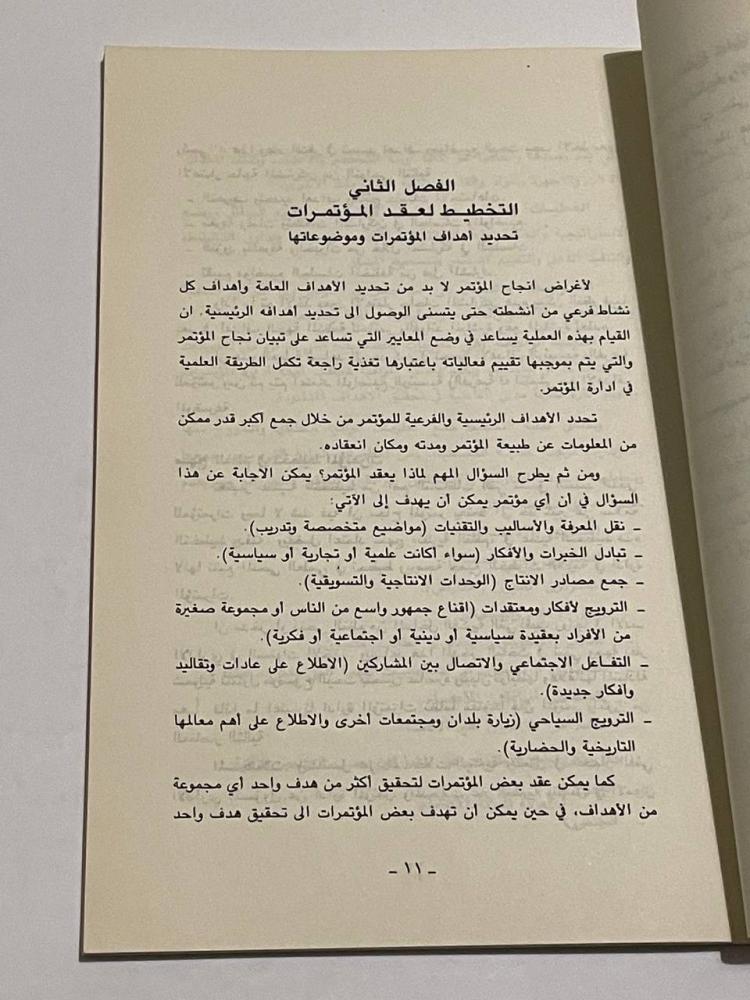 الفصل الثاني
التخطيـط لـعـقـد الـمـؤتمـرات
تحديد أهداف المؤتمرات وموضوعاتها
لأغراض انجاح المؤتمر لا بد من تحديد الأهداف العامة وأهداف كل
نشاط فرعي من أنشطته حتى يتسنى الوصول الى تحديد أهدافه الرئيسية. ان
القيام بهذه العملية يساعد في وضع المعايير التي تساعد على تبيان نجاح المؤتمر
والتي يتم بموجبها تقييم فعالياته باعتبارها تغذية راجعة تكمل الطريقة العلمية
في ادارة المؤتمر.
تحدد الأهداف الرئيسية والفرعية للمؤتمر من خلال جمع أكبر قدر ممكن
من المعلومات عن طبيعة المؤتمر ومدته ومكان انعقاده.
ومن ثم يطرح السؤال المهم لماذا يعقد المؤتمر؟ يمكن الاجابة عن هذا
السؤال في أن أي مؤتمر يمكن أن يهدف إلى الآتي:
ـ نقل المعرفة والأساليب والتقنيات (مواضيع متخصصة وتدريب).
ـ تبادل الخبرات والأفكار (سواء أكانت علمية أو تجارية أو سياسية).
ـ جمع مصادر الانتاج (الوحدات الانتاجية والتسويقية).
ـ الترويج لأفكار ومعتقدات (اقناع جمهور واسع من الناس أو مجموعة صغيرة
من الأفراد بعقيدة سياسية أو دينية أو اجتماعية أو فكرية).
ـ التفـاعل الاجتماعي والاتصال بين المشاركين (الاطلاع على عادات وتقاليد
وأفكار جديدة).
ـ الترويج السياحي (زيارة بلدان ومجتمعات أخرى والاطلاع على أهم معالمها
التاريخية والحضارية).
كما يمكن عقد بعض المؤتمرات لتحقيق أكثر من هدف واحد أي مجموعة
من الأهداف، في حين يمكن أن تهدف بعض المؤتمرات الى تحقيق هدف واحد
ـ ١١ ـ